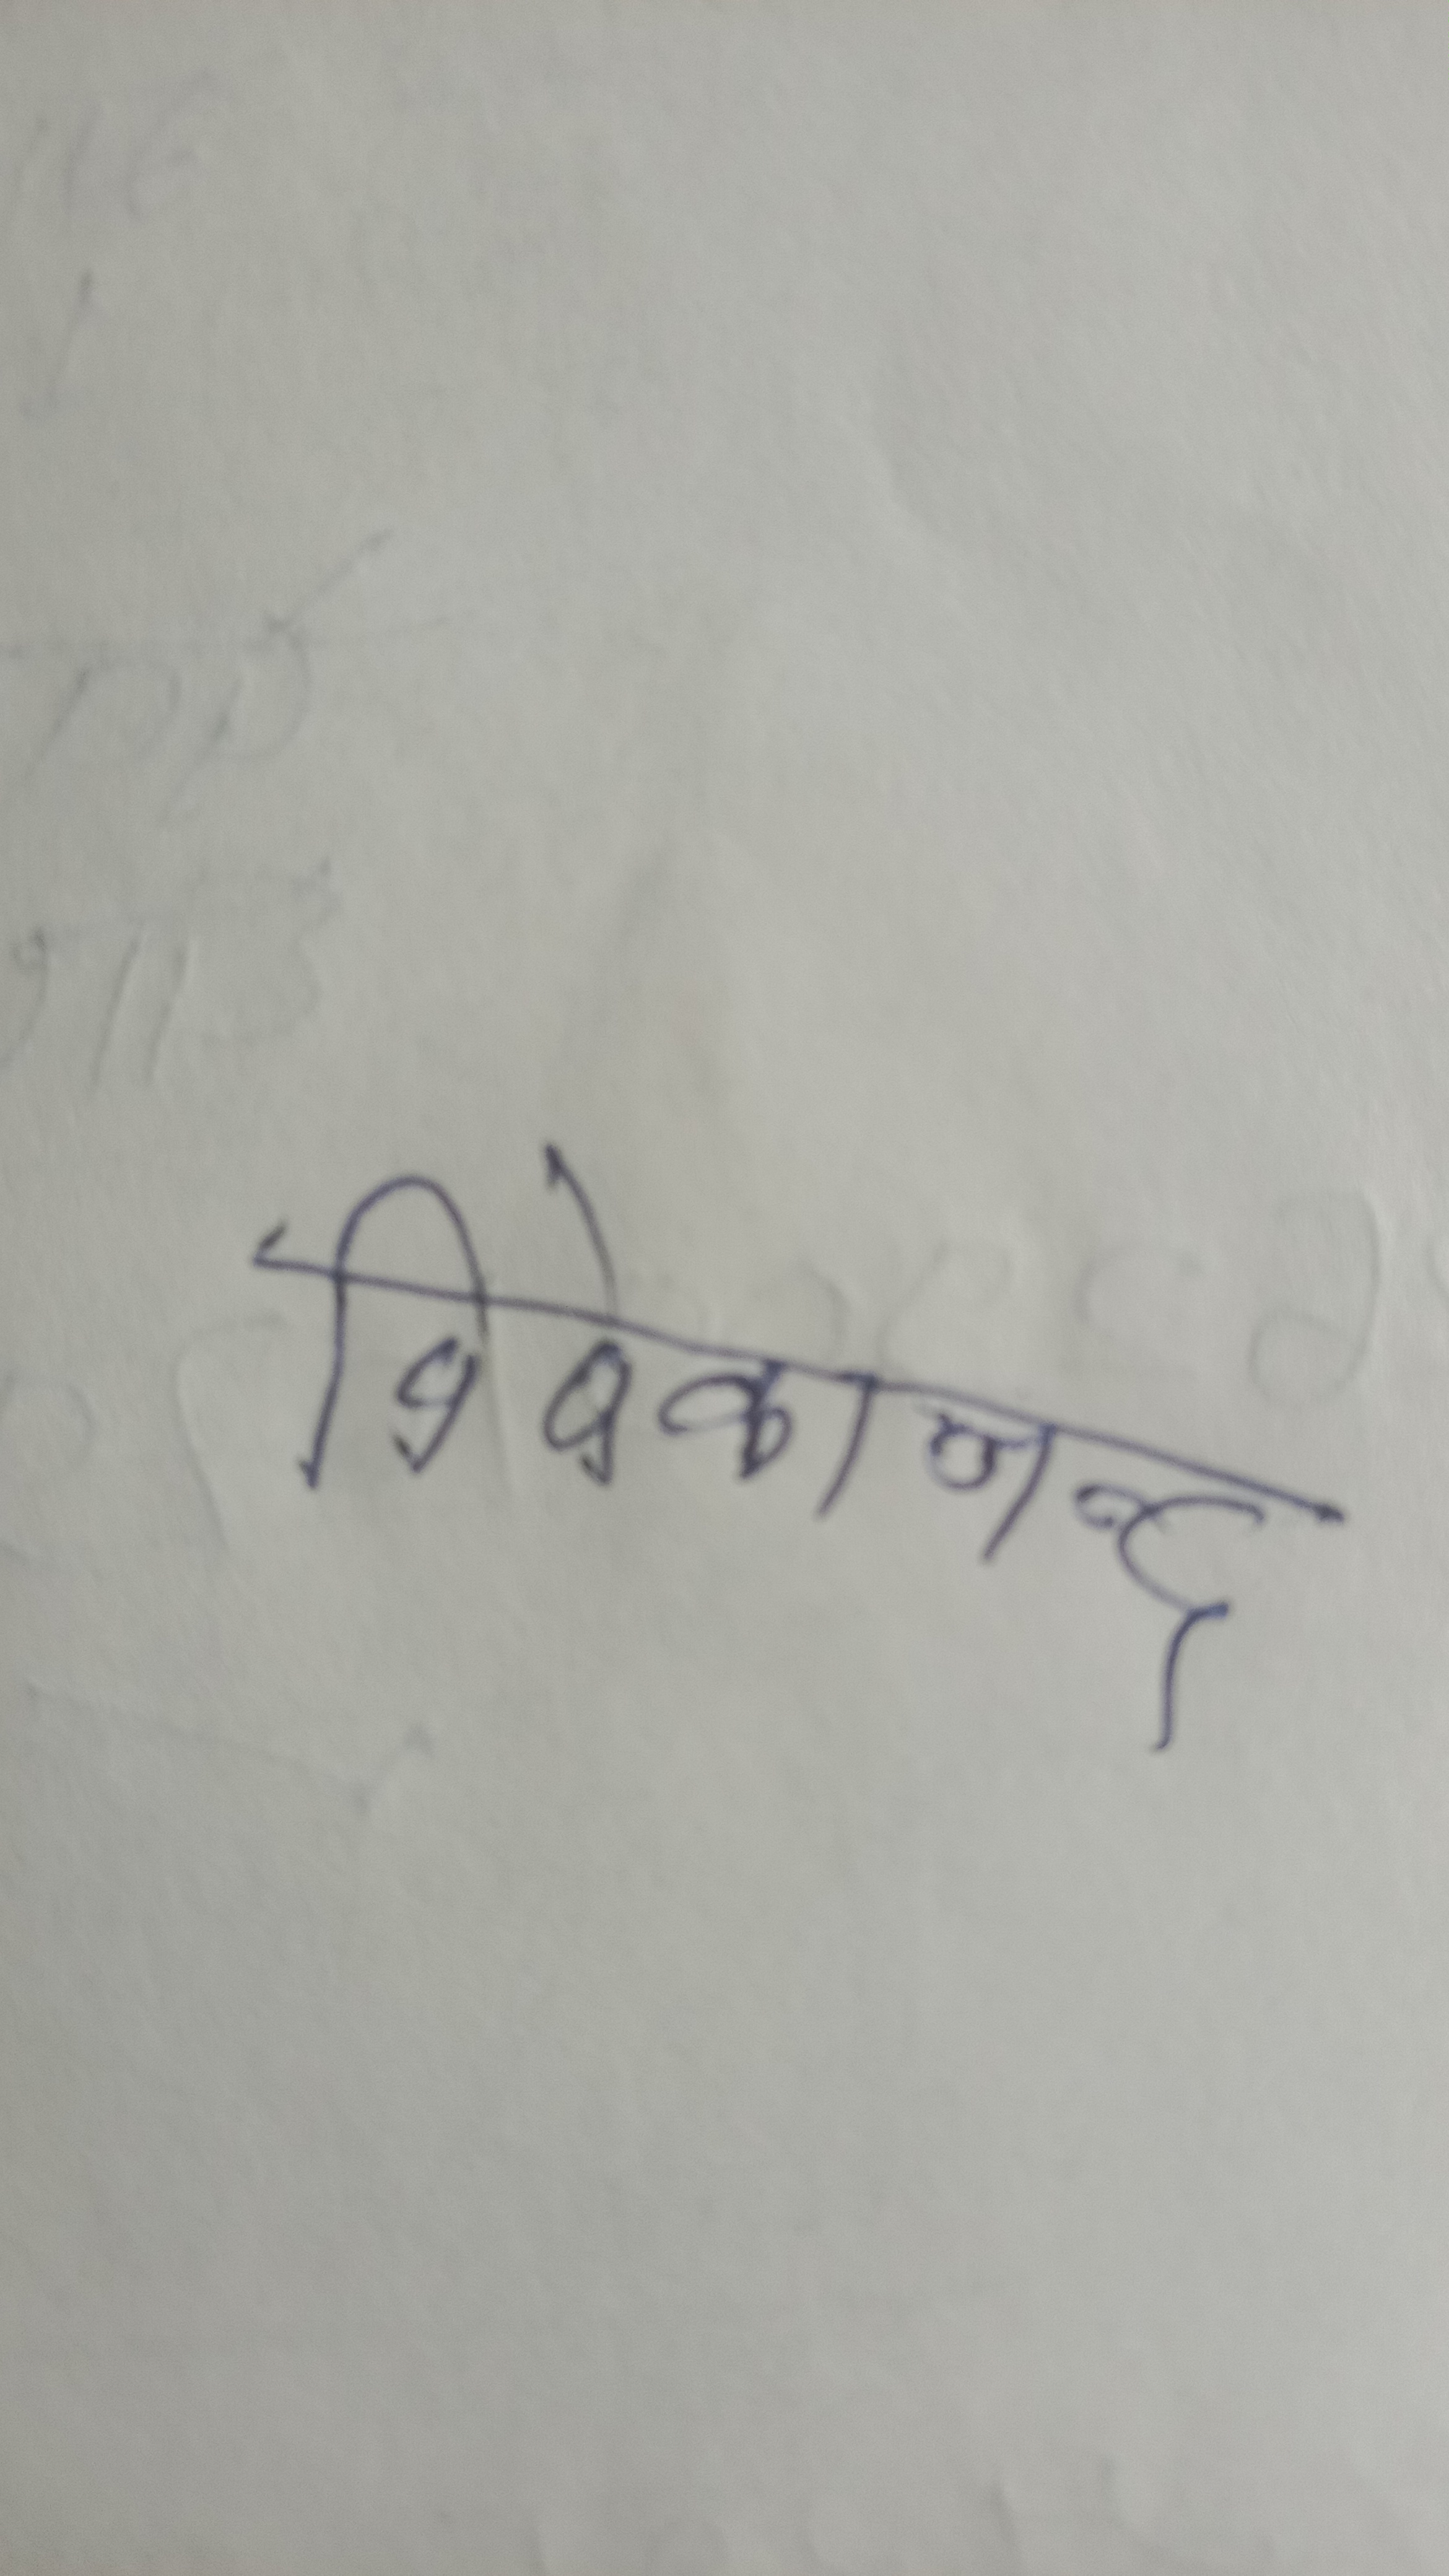 विवेकानन्द